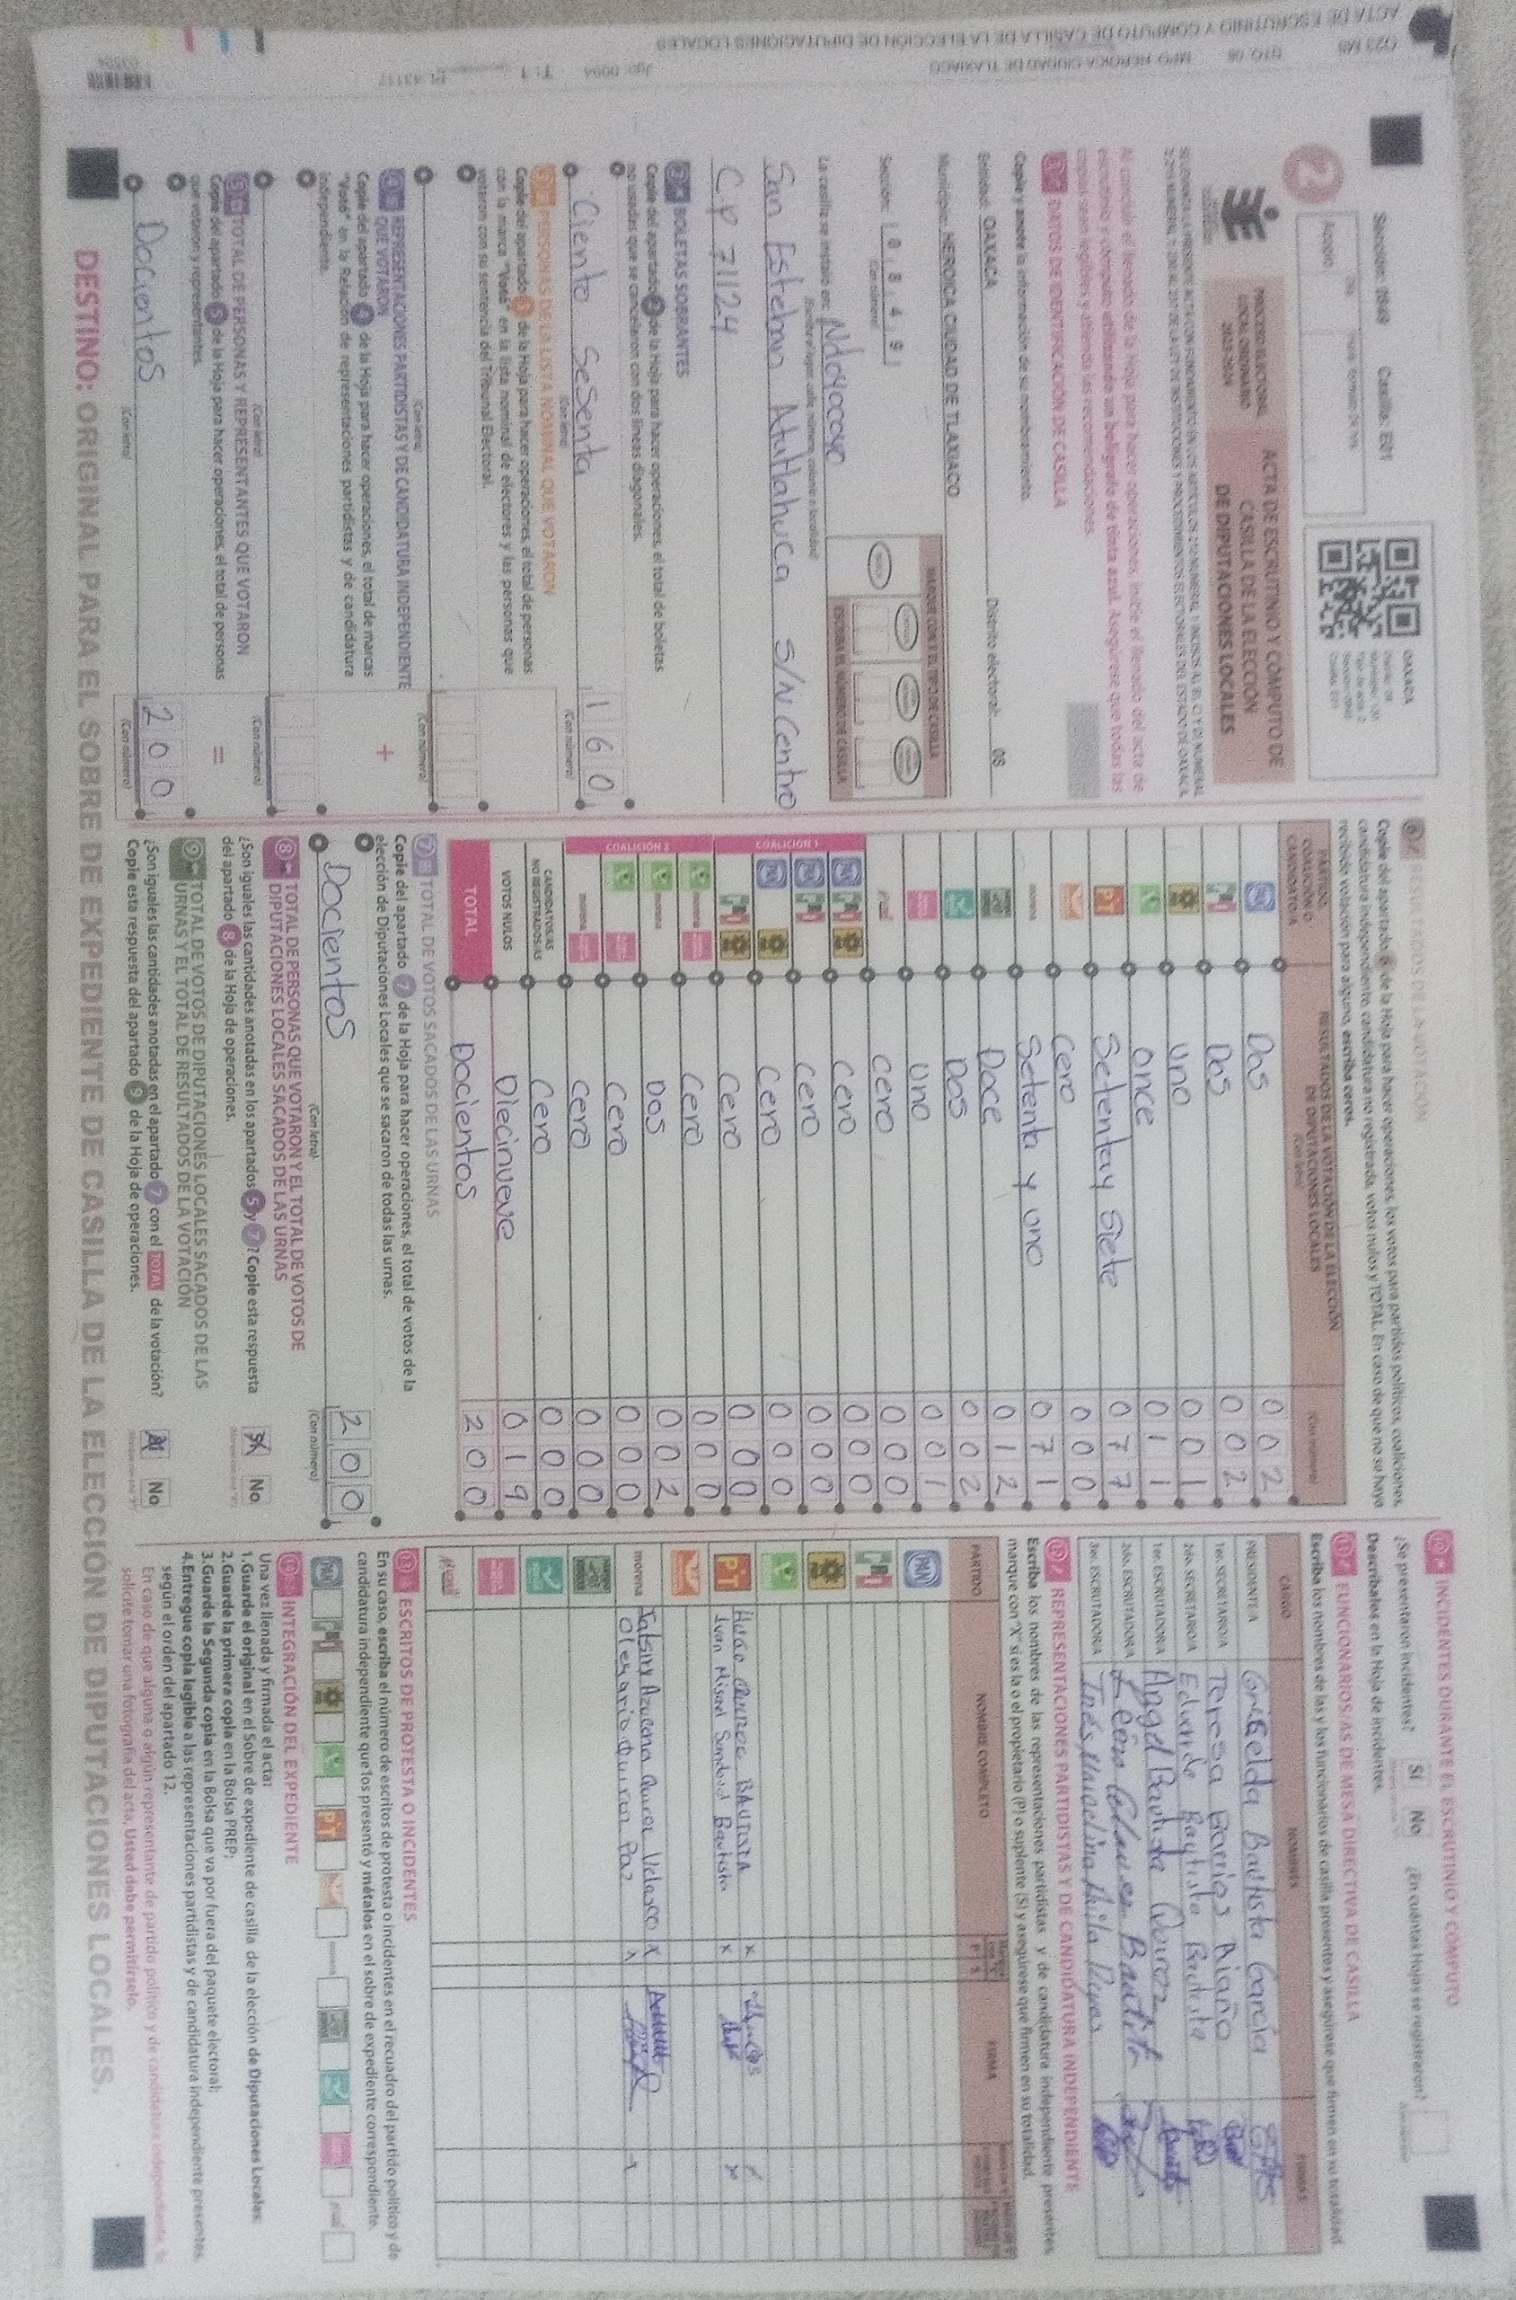 Sección: 0849 Casilla: E01
OAXACA
PROCESO ELECTORAL
LOCAL ORDINARIO
2023-2024
ACTA DE ESCRUTINIO Y CÓMPUTO DE
CASILLA DE LA ELECCIÓN
DE DIPUTACIONES LOCALES
Al concluir el llenado de la Hoja para hacer operaciones, inicie el llenado del acta de
escrutinio y cómputo utilizando un bolígrafo de tinta azul. Asegúrese que todas las
copias sean legibles y atienda las recomendaciones.
DATOS DE IDENTIFICACIÓN DE CASILLA
Copie y anote la información de su nombramiento.
Entidad: OAXACA Distrito electoral: 08
Municipio: HEROICA CIUDAD DE TLAXIACO
Sección: 0 8 4 9
(Con número)
MARQUE CON X EL TIPO DE CASILLA
ESCRIBA EL NÚMERO DE CASILLA
La casilla se instaló en:
San Esteban Atatlahuca S/N Centro
CP 71124
2 BOLETAS SOBRANTES
Copie del apartado 2 de la Hoja para hacer operaciones, el total de boletas
no usadas que se cancelaron con dos líneas diagonales.
Ciento Sesenta 1 6 0
(Con letra) (Con número)
3 PERSONAS DE LA LISTA NOMINAL QUE VOTARON
Copie del apartado 3 de la Hoja para hacer operaciones, el total de personas
con la marca "Votó" en la lista nominal de electores y las personas que
votaron con su sentencia del Tribunal Electoral.
(Con letra) (Con número)
4 REPRESENTACIONES PARTIDISTAS Y DE CANDIDATURA INDEPENDIENTE
QUE VOTARON
+
Copie del apartado 4 de la Hoja para hacer operaciones, el total de marcas
"Votó" en la Relación de representaciones partidistas y de candidatura
independiente.
(Con letra) (Con número)
5 TOTAL DE PERSONAS Y REPRESENTANTES QUE VOTARON
=
Copie del apartado 5 de la Hoja para hacer operaciones, el total de personas
que votaron y representantes.
Docientos 2 0 0
(Con letra) (Con número)
6 RESULTADOS DE LA VOTACIÓN
Copie del apartado 6 de la Hoja para hacer operaciones, los votos para partidos políticos, coaliciones,
candidatura independiente, candidatura no registrada, votos nulos y TOTAL. En caso de que no se haya
recibido votación para alguno, escriba ceros.
PARTIDO, COALICIÓN O CANDIDATO/A
RESULTADOS DE LA VOTACIÓN DE LA ELECCIÓN
DE DIPUTACIONES LOCALES
PAN Dos 0 0 2
PRI Dos 0 0 2
PRD Uno 0 0 1
Once 0 1 1
PT Setenta y Siete 0 7 7
Cero 0 0 0
morena Setenta y uno 0 7 1
Doce 0 1 2
Dos 0 0 2
Uno 0 0 1
Cero 0 0 0
COALICIÓN 1
Cero 0 0 0
Cero 0 0 0
Cero 0 0 0
Cero 0 0 0
COALICIÓN 2
Cero 0 0 0
Dos 0 0 2
Cero 0 0 0
Cero 0 0 0
CANDIDATOS/AS
NO REGISTRADOS/AS Cero 0 0 0
VOTOS NULOS Diecinueve 0 1 9
TOTAL Docientos 2 0 0
7 TOTAL DE VOTOS SACADOS DE LAS URNAS
Copie del apartado 7 de la Hoja para hacer operaciones, el total de votos de la
elección de Diputaciones Locales que se sacaron de todas las urnas.
Docientos 2 0 0
(Con letra) (Con número)
8 TOTAL DE PERSONAS QUE VOTARON Y EL TOTAL DE VOTOS DE
DIPUTACIONES LOCALES SACADOS DE LAS URNAS
¿Son iguales las cantidades anotadas en los apartados 5 y 7? Copie esta respuesta
del apartado 8 de la Hoja de operaciones.
No
9 TOTAL DE VOTOS DE DIPUTACIONES LOCALES SACADOS DE LAS
URNAS Y EL TOTAL DE RESULTADOS DE LA VOTACIÓN
¿Son iguales las cantidades anotadas en el apartado 7 con el TOTAL de la votación?
Copie esta respuesta del apartado 9 de la Hoja de operaciones.
No
10 INCIDENTES DURANTE EL ESCRUTINIO Y CÓMPUTO
¿Se presentaron incidentes? Sí No ¿En cuántas Hojas se registraron?
Descríbalos en la Hoja de incidentes.
11 FUNCIONARIOS/AS DE MESA DIRECTIVA DE CASILLA
Escriba los nombres de las y los funcionarios de casilla presentes y asegúrese que firmen en su totalidad.
CARGO NOMBRES FIRMAS
PRESIDENTE/A Griselda Bautista García
1er. SECRETARIO/A Teresa Barrios Riaño
2do. SECRETARIO/A Eduardo Bautista Bautista
1er. ESCRUTADOR/A Angel Bautista
2do. ESCRUTADOR/A Bautista
3er. ESCRUTADOR/A Inés Marcelina
12 REPRESENTACIONES PARTIDISTAS Y DE CANDIDATURA INDEPENDIENTE
Escriba los nombres de las representaciones partidistas y de candidatura independiente presentes,
marque con "X" si es la o el propietario (P) o suplente (S) y asegúrese que firmen en su totalidad.
PARTIDO NOMBRE COMPLETO P S FIRMA
PAN
PT Hugo BAUTISTA x
Ivan Misael Sandoval Bautista x
morena Azucena Quiroz Velasco x
Olegario Quiroz Paz x
13 ESCRITOS DE PROTESTA O INCIDENTES
En su caso, escriba el número de escritos de protesta o incidentes en el recuadro del partido político y de
candidatura independiente que los presentó y métalos en el sobre de expediente correspondiente.
INTEGRACIÓN DEL EXPEDIENTE
Una vez llenada y firmada el acta:
1.Guarde el original en el Sobre de expediente de casilla de la elección de Diputaciones Locales;
2.Guarde la primera copia en la Bolsa PREP;
3.Guarde la Segunda copia en la Bolsa que va por fuera del paquete electoral;
4.Entregue copia legible a las representaciones partidistas y de candidatura independiente presentes,
según el orden del apartado 12.
En caso de que alguna o algún representante de partido político y de candidatura independiente, le
solicite tomar una fotografía del acta, Usted debe permitírselo.
DESTINO: ORIGINAL PARA EL SOBRE DE EXPEDIENTE DE CASILLA DE LA ELECCIÓN DE DIPUTACIONES LOCALES.
ACTA DE ESCRUTINIO Y CÓMPUTO DE CASILLA DE LA ELECCIÓN DE DIPUTACIONES LOCALES